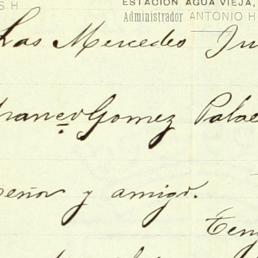 ESTACIÓN AGUA VIEJA,
Administrador ANTONIO H
Las Mercedes Ju
Franco Gomez Palac
Señor y amigo.
Teng